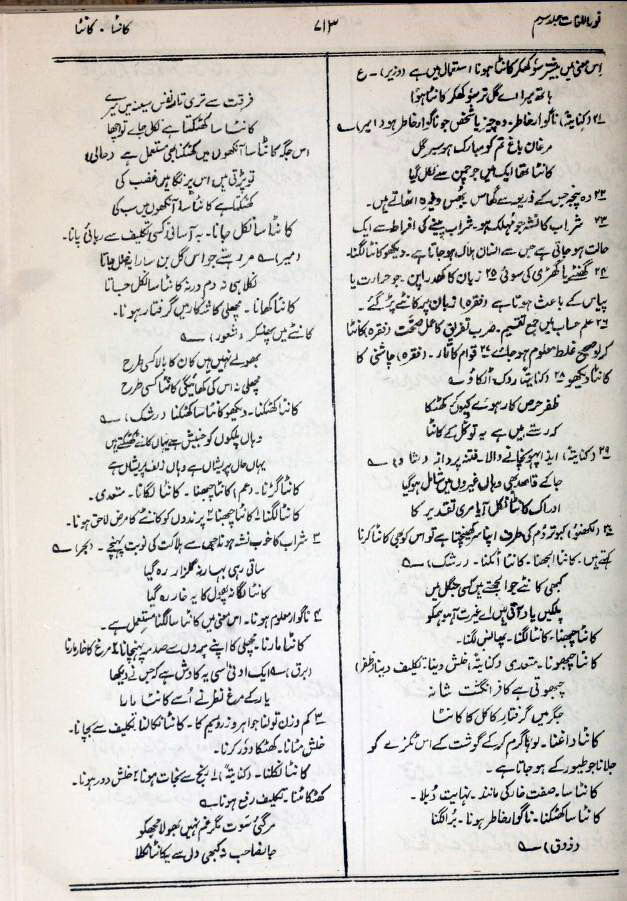 نور اللغات جلد سوم
۷۱۳
کانٹا - کانٹا
اِس معنی میں بیشتر سوکھکر کانٹا ہونا استعمال میں ہے (وزیر) - ع
ہاتھ میرا اے گلِ تر سوکھکر کانٹا ہوا
۲۱ (کنایۃً) ناگوار خاطر - وہ چیز یا شخص جو ناگوار خاطر ہو (امیر) ؎
مرغانِ باغ تم کو مبارک ہو سیرِ گل
کانٹا تھا ایک میں جو چمن سے نکل گیا
۲۲ وہ پنجہ جس کے ذریعہ سے گھاس بھُس وغیرہ اٹھاتے ہیں -
۲۳ شراب کا نشہ جو مہلک ہو - شراب پینے کی افراط سے ایک
حالت ہو جاتی ہے جس سے انسان ہلاک ہو جاتا ہے - دیکھو کانٹا لگنا -
۲۴ گھنٹے یا گھڑی کی سوئی ۲۵ زبان کا کھدراپن - جو حرارت یا
پیاس کے باعث ہوتا ہے (فقرہ) زبان پر کانٹے پڑ گئے -
۲۶ علم حساب میں جمع تقسیم - ضرب تفریق کا عملِ صحت (فقرہ) کانٹا
کر لو صحیح غلط معلوم ہو جائے ۲۷ قوام کا تار - (فقرہ) چاشنی کا
کانٹا دیکھو ۲۸ (کنایۃً) روک - اٹکاؤ ؎
ظفر حرص کار ہوئے کیوں کھٹکا
کہ رستے میں ہے یہ توکل کے کانٹا
۲۹ (کنایۃً) ایذا پہونچانے والا - فتنہ پرداز (شاد) ؎
جا کے قاصد بھی وہاں غیروں میں شامل ہو گیا
اور اک کانٹا نکل آیا مری تقدیر کا
۳۰ (لکھنؤ) کبوتر دُم کی طرف اپنا سر کھینچتا ہے تو اس کو بھی کانٹا کرنا
کہتے ہیں - کانٹا الجھنا - کانٹا اٹکنا - (رشک) ؎
کبھی کانٹے جو الجھتے ہیں کسی جنگل میں
پلکیں یاد آتی ہیں اے غیرتِ آہو ہمکو
کانٹا چبھنا - کانٹا لگنا - پھانس لگنا -
کانٹا چبھونا - متعدی (کنایۃً) خلش دینا - تکلیف دینا (ظفر)
چبھوتی ہے کافر انگشتِ شانہ
جگر میں گرفتارِ کاکل کا کانٹا
کانٹا داغنا - لوہا گرم کر کے گوشت کے اس ٹکڑے کو
جلانا جو طیور کے ہو جاتا ہے -
کانٹا سا - صفت خار کی مانند - نہایت دُبلا -
کانٹا سا کھٹکنا - ناگوار خاطر ہونا - بُرا لگنا
(ذوق) ؎
فرقت سے تری تارِ نفس سینہ میں میرے
کانٹا سا کھٹکتا ہے نکل جائے تو اچھا
اس جگہ کانٹا سا آنکھوں میں کھٹکنا بھی مستعمل ہے (حالی)
تو پڑتی ہیں اس پر نگاہیں غضب کی
کھٹکتا ہے کانٹا سا آنکھوں میں سب کی
کانٹا سا نکل جانا - بہ آسانی کسی تکلیف سے رہائی پانا -
(میر) ؎ مر رہتے جو اس گل بن سارا یہ خلل جاتا
نکلا ہی نہ دم ورنہ کانٹا سا نکل جاتا
کانٹا کھانا - مچھلی کا شکار میں گرفتار ہونا -
کانٹے میں پھنسکر (شعور) ؎
بھولے نہیں ہیں کان کا بالا کسی طرح
مچھلی نہ اس کی کھائیگی کانٹا کسی طرح
کانٹا کھٹکنا - دیکھو کانٹا سا کھٹکنا (رشک) ؎
وہاں پلکوں کو جنبش ہے یہاں کانٹے کھٹکتے ہیں
یہاں حال پریشاں ہے وہاں زلف پریشاں ہے
کانٹا گڑنا - (عم) کانٹا چبھنا - کانٹا لگانا - متعدی -
کانٹا لگنا ۱ کانٹا چبھنا ۲ پرندوں کو کانٹے کا مرض لاحق ہونا -
۳ شراب کا خوب نشہ ہونا جس سے ہلاکت کی نوبت پہنچے - (بحر) ؎
ساقی رہی بہار نہ گلزار رہ گیا
کانٹا لگا نہ پھول کا یہ خار رہ گیا
۴ ناگوار معلوم ہونا - اس معنی میں کانٹا سا لگنا مستعمل ہے -
کانٹا مارنا - مچھلی کا اپنے پروں سے صدمہ پہنچانا ۲ مرغ کا خار مارنا
(برق) ؎ ایک ادنیٰ سی یہ کاوش ہے کہ جس نے دیکھا
یار کے مرغِ نظر نے اُسے کانٹا مارا
۳ کم وزن تولنا جواہر و زر و سیم کا - کانٹا نکالنا تکلیف سے بچانا -
خلش مٹانا - کھٹکا دور کرنا -
کانٹا نکلنا - (کنایۃً) ۱ رنج سے نجات ہونا ۲ خلش دور ہونا -
کھٹکا مٹنا - تکلیف رفع ہونا ؎
مر گئی سوت مگر غم نہیں بھولا مجھکو
جانصاحب نہ کبھی دل سے یہ کانٹا نکلا